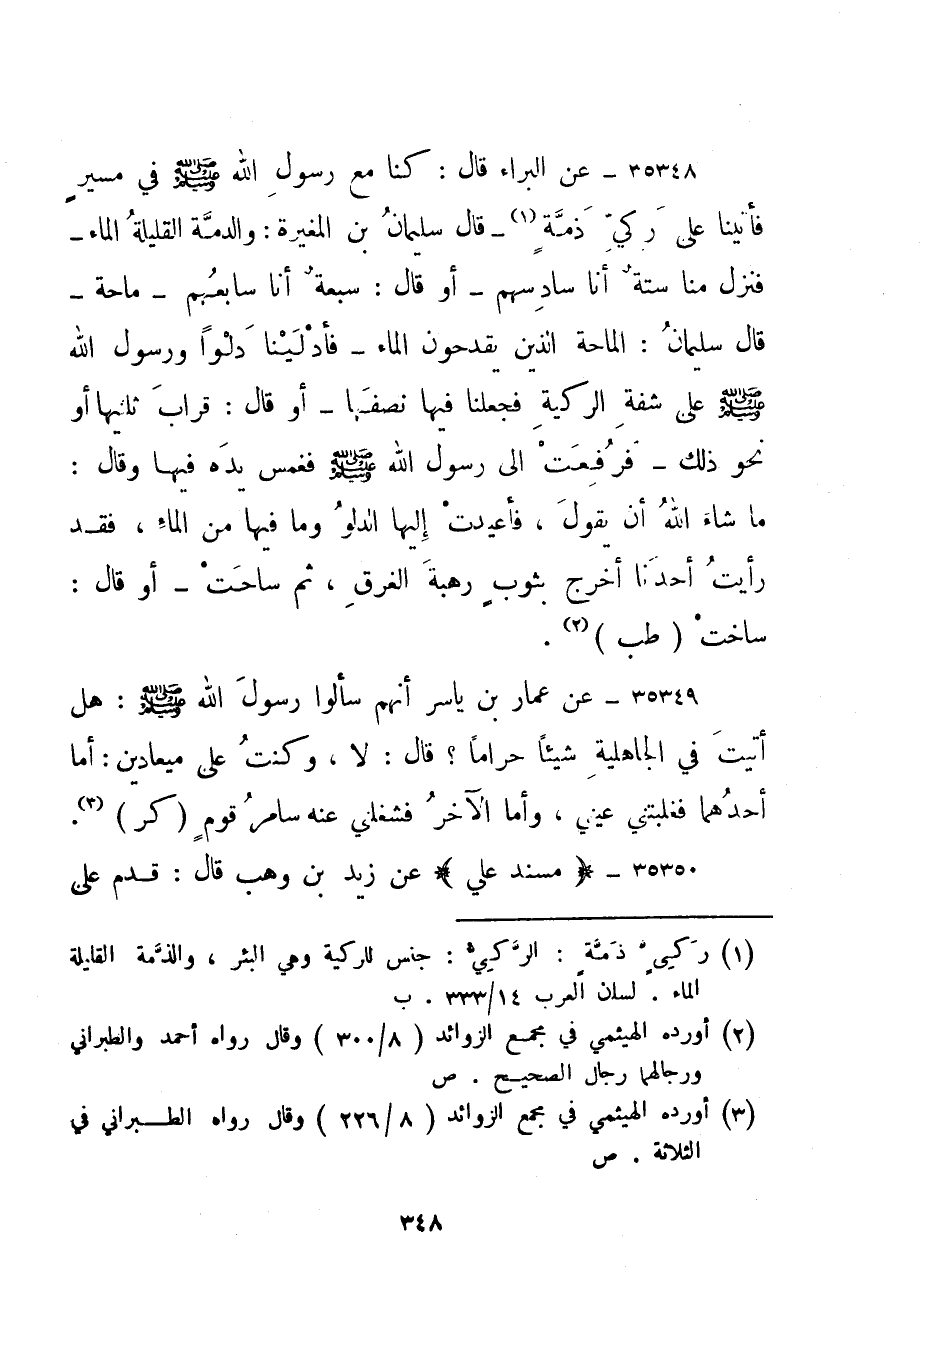 ٣٥٣٤٨ ـ عن البراء قال : كنا مع رسولِ الله ﷺ في مسيرٍ
فأتينا على رَكيّ ذَمَّةٍ (١) ـ قال سليمانُ بن المغيرة : والدمَّة القليلةُ الماء ـ
فنزل منا ستةٌ أنا سادِسهم ـ أو قال : سبعةٌ أنا سابعُهم ـ ماحة ـ
قال سليمانُ : الماحة الذين يقدحون الماء ـ فأدْلَيْنا دَلْواً ورسول الله
ﷺ على شفةِ الركيةِ فجعلنا فيها نصفَها ـ أو قال : قرابَ ثلثيها أو
نحو ذلك ـ فرُفِعَتْ الى رسول الله ﷺ فغمس يدَه فيها وقال :
ما شاءَ اللهُ أن يقولَ ، فأعيدتْ إليها الدلوُ وما فيها من الماءِ ، فقد
رأيتُ أحدَنا أخرج بثوبٍ رهبةَ الغرقِ ، ثم ساحَتْ ـ أو قال :
ساختْ ( طب ) (٢) .
٣٥٣٤٩ ـ عن عمار بن ياسر أنهم سألوا رسولَ الله ﷺ : هل
أتيتَ في الجاهليةِ شيئاً حراماً ؟ قال : لا ، وكنتُ على ميعادين : أما
أحدُهما فغلبتني عيني ، وأما الآخرُ فشغلني عنه سامرُ قومٍ ( كر ) (٣).
٣٥٣٥٠ ـ ﴿ مسند علي ﴾ عن زيد بن وهب قال : قدم على
(١) رَكيٍّ ذَمَّةٍ : الرَّكيُّ : جنس للركية وهي البئر ، والذَّمة القليلة
الماء . لسان العرب ٣٣٣/١٤ . ب
(٢) أورده الهيثمي في مجمع الزوائد ( ٣٠٠/٨ ) وقال رواه أحمد والطبراني
ورجالهما رجال الصحيح . ص
(٣) أورده الهيثمي في مجمع الزوائد ( ٢٢٦/٨ ) وقال رواه الطبراني في
الثلاثة . ص
٣٤٨